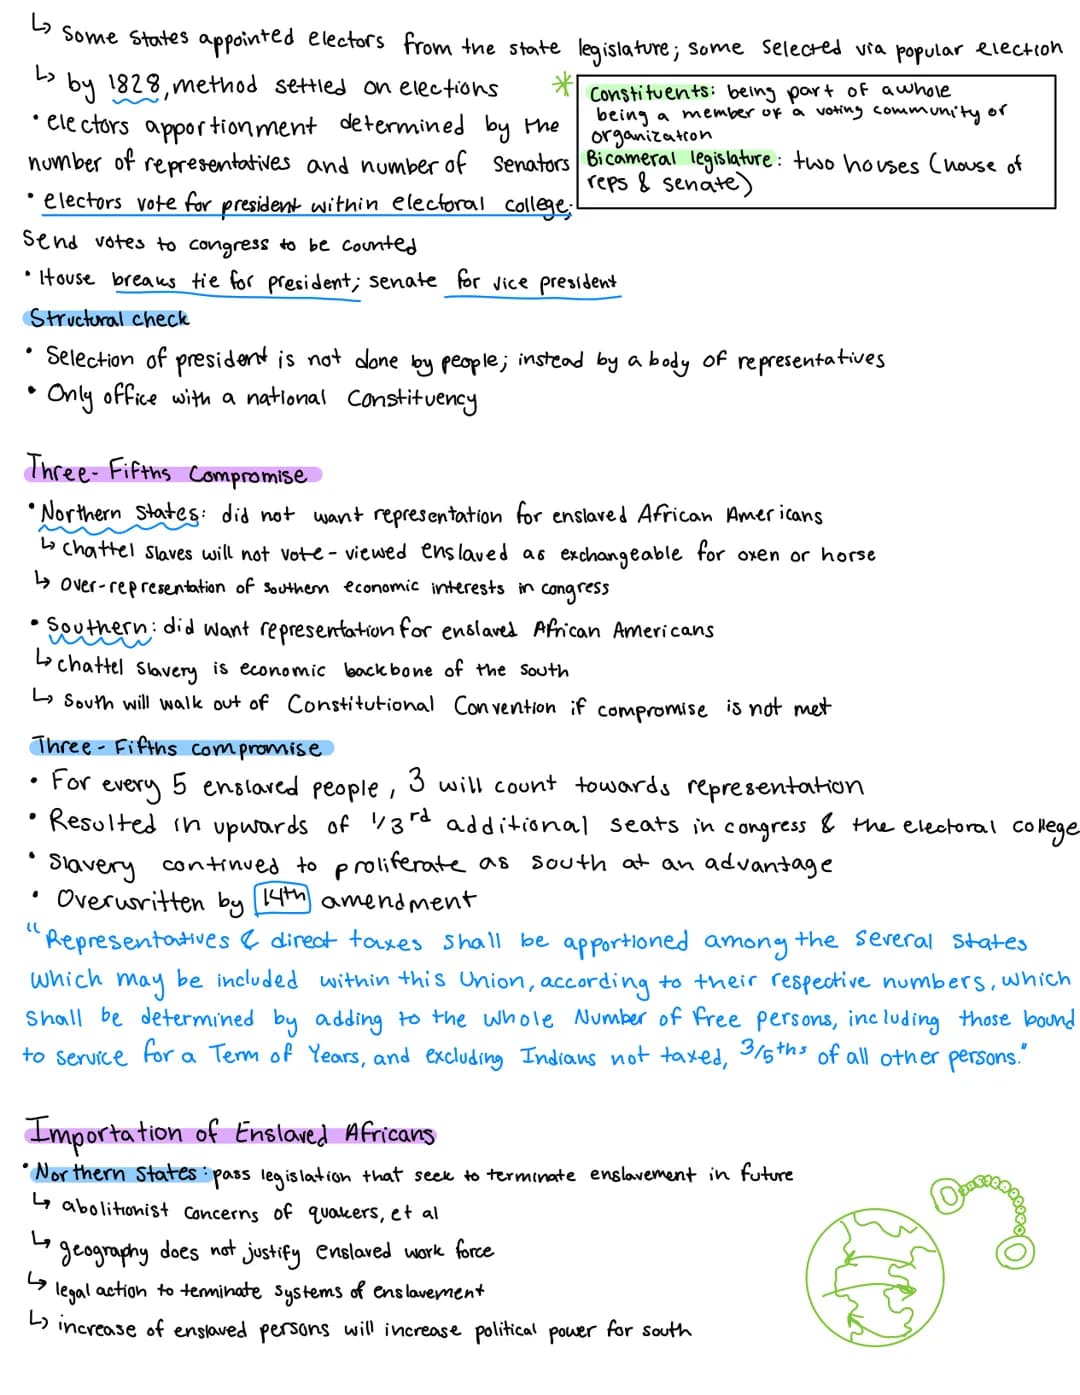 ↳ Some States appointed electors from the state legislature; some selected via popular election
↳ by 1828, method settled on elections
• electors apportionment determined by the
number of representatives and number of Senators
• electors vote for president within electoral college;
Send votes to congress to be counted
* Constituents: being part of a whole
being a member of a voting community or
organization
Bicameral legislature: two houses (house of
reps & senate)
• House breaks tie for president; senate for vice president
Structural check
• Selection of president is not done by people; instead by a body of representatives
• Only office with a national Constituency
Three-Fifths Compromise
• Northern States: did not want representation for enslaved African Americans
↳ chattel slaves will not vote - viewed enslaved as exchangeable for oxen or horse
↳ over-representation of southern economic interests in congress
• Southern: did want representation for enslaved African Americans
↳ chattel slavery is economic backbone of the south
↳ South will walk out of Constitutional Convention if compromise is not met
Three-Fifths compromise
• For every 5 enslaved people, 3 will count towards representation
• Resulted in upwards of 1/3rd additional seats in congress & the electoral college
• Slavery continued to proliferate as south at an advantage
• Overwritten by 14th amendment
"Representatives & direct taxes shall be apportioned among the several states
which may be included within this Union, according to their respective numbers, which
shall be determined by adding to the whole Number of free persons, including those bound
to service for a Term of Years, and excluding Indians not taxed, 3/5ths of all other persons."
Importation of Enslaved Africans
• Northern States: pass legislation that seek to terminate enslavement in future
↳ abolitionist concerns of quakers, et al
↳ geography does not justify enslaved work force
↳ legal action to terminate systems of enslavement
↳ increase of enslaved persons will increase political power for south